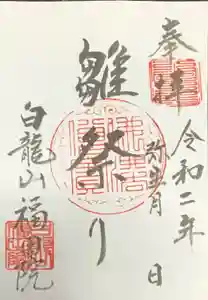 奉拝
令和二年
弥生月 日
雛祭り
白龍山福圓院